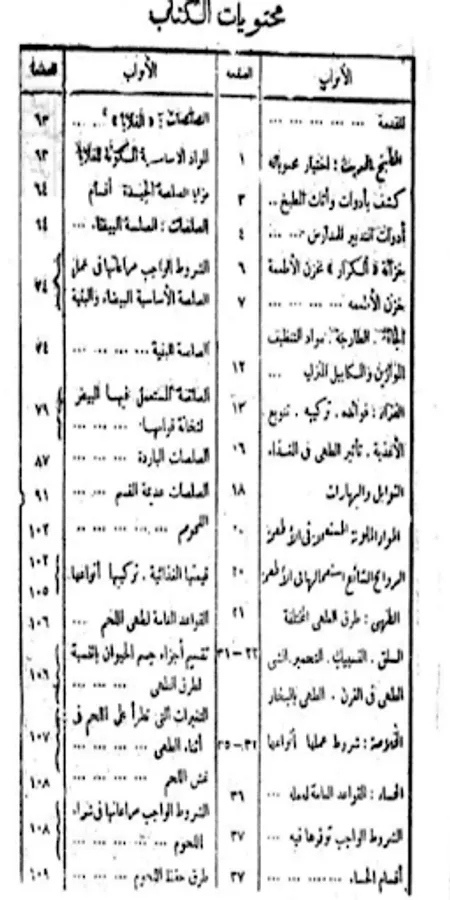 محتويات الكتاب
الأبواب الصفحة
المقدمة ... ... ... ... ...
المطبخ الحديث : اختيار محتوياته ١
كشف بأدوات وأثاث المطبخ .. ٣
أدوات التدبير للمدارس ... ... ٤
خزانة « الكرار » لخزن الأطعمة ٦
خزن الأطعمة ... ... ... ... ٧
الطازجة . مواد التنظيف
الموازين والمكاييل المنزلية ... ١٢
الغذاء : فوائده . تركيبه . تنويع . ١٣
الأغذية . تأثير الطهى فى الغذاء ١٦
التوابل والبهارات ١٨
المواد الملونة المستعملة فى الأطعمة ٢٠
الروائح الشائع استعمالها فى الأطعمة ٢٠
الطهى : طرق الطهى المختلفة ٢١
السلق . التسبيك . التحمير . الشى ٢٢–٣١
الطهى فى الفرن . الطهى بالبخار
الخلاصة : شروط عملها أنواعها ٣١–٣٥
الحساء : القواعد العامة لعمله ... ٣٦
الشروط الواجب توفرها فيه ... ٣٧
أقسام الحساء ... ... ... ... ٣٧
الأبواب الصفحة
الصلصات : « ... ... ٦٣
المواد الأساسية المكونة ٦٣
مزايا الصلصة الجيدة أقسام ٦٤
الصلصات : الصلصة البيضاء ... ٦٤
الشروط الواجب مراعاتها فى عمل
الصلصة الأساسية البيضاء والبنية ٧٤
الصلصة البنية ... ... ... ... ٧٤
المستعمل فيها البيض
لثخانة قوامها ... ... ... ٧٩
الصلصات الباردة ... ... ... ٨٧
الصلصات عديمة القسم ... ٩١
اللحوم ... ... ... ... ... ١٠٢
قيمتها الغذائية . تركيبها أنواعها . ١٠٢ ١٠٥
القواعد العامة لطهى اللحم ... ١٠٦
تقسيم أجزاء جسم الحيوان بالنسبة
لطرق الطهى ... ... ... ١٠٦
التغيرات التى تطرأ على اللحم فى
أثناء الطهى ... ... ... ... ١٠٧
غش اللحم ... ... ... ... ١٠٨
الشروط الواجب مراعاتها فى شراء
اللحوم ... ... ... ... ... ١٠٨
طرق حفظ اللحوم ... ... ١٠٩